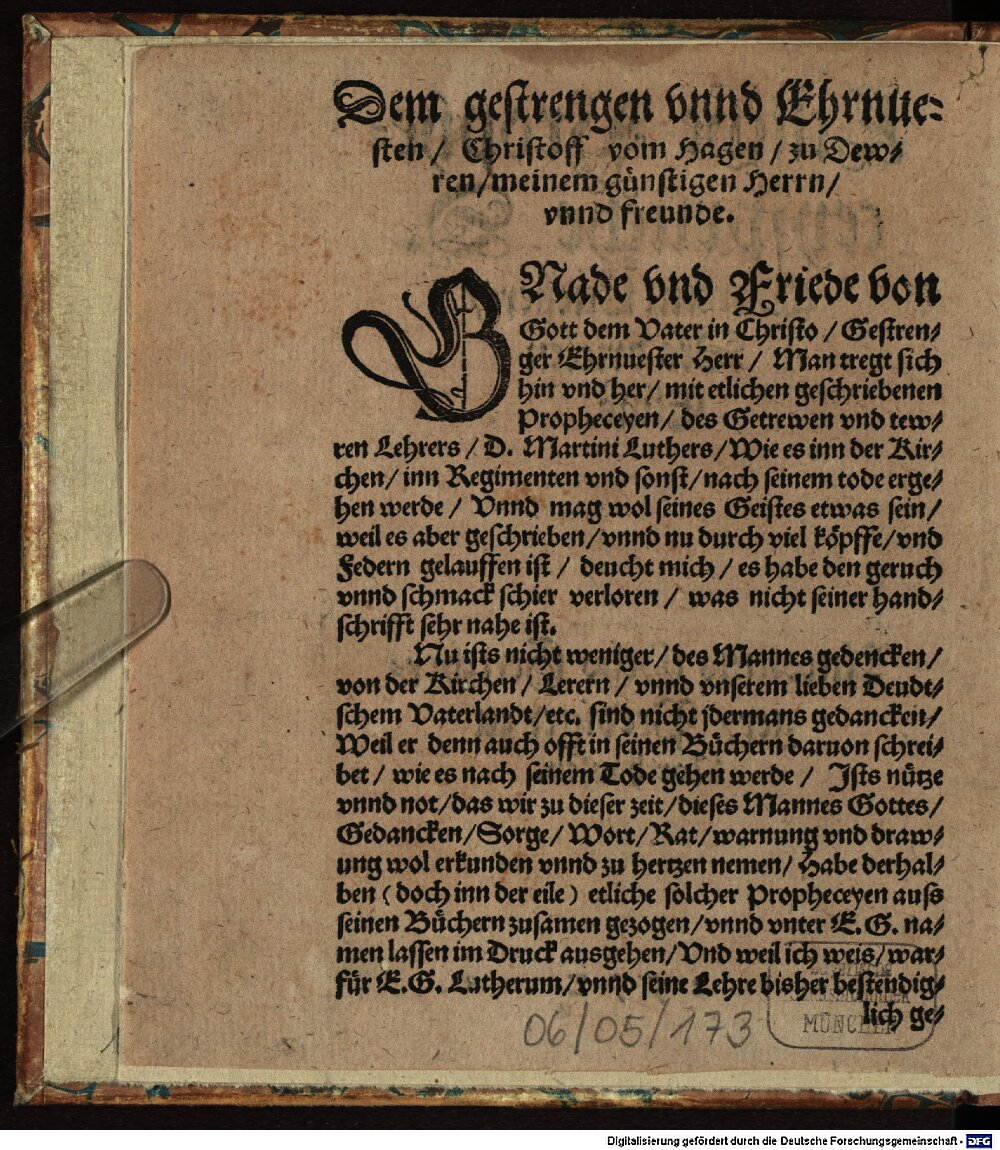 Dem gestrengen vnnd Ehrnue-
sten / Christoff vom Hagen / zu Dew/
ren/meinem günstigen Herrn/
vnnd freunde.
GNade vnd Friede von
Gott dem Vater in Christo / Gestren/
ger Ehrnuester Herr / Man tregt sich
hin vnd her/ mit etlichen geschriebenen
Propheceyen/ des Getrewen vnd tew/
ren Lehrers / D. Martini Luthers/Wie es inn der Kir/
chen/ inn Regimenten vnd sonst/nach seinem tode erge/
hen werde / Vnnd mag wol seines Geistes etwas sein/
weil es aber geschrieben/vnnd nu durch viel köpffe/vnd
Federn gelauffen ist / deucht mich/ es habe den geruch
vnnd schmack schier verloren / was nicht seiner hand/
schrifft sehr nahe ist.
Nu ists nicht weniger/ des Mannes gedencken/
von der Kirchen/ Lerern / vnnd vnserem lieben Deudt/
schem Vaterlandt/etc. sind nicht jdermans gedancken/
Weil er denn auch offt in seinen Büchern daruon schrei/
bet/ wie es nach seinem Tode gehen werde / Ists nütze
vnnd not/das wir zu dieser zeit/dieses Mannes Gottes/
Gedancken/Sorge/Wort/Rat/warnung vnd draw/
ung wol erkunden vnnd zu hertzen nemen/ Habe derhal/
ben (doch inn der eile) etliche solcher Propheceyen auss
seinen Büchern zusamen gezogen/vnnd vnter E. G. na/
men lassen im Druck ausgehen/Vnd weil ich weis/war/
für E.G. Lutherum/vnnd seine Lehre bisher bestendig/
lich ge/
06/05/173
MÜNCHEN
Digitalisierung gefördert durch die Deutsche Forschungsgemeinschaft - DFG